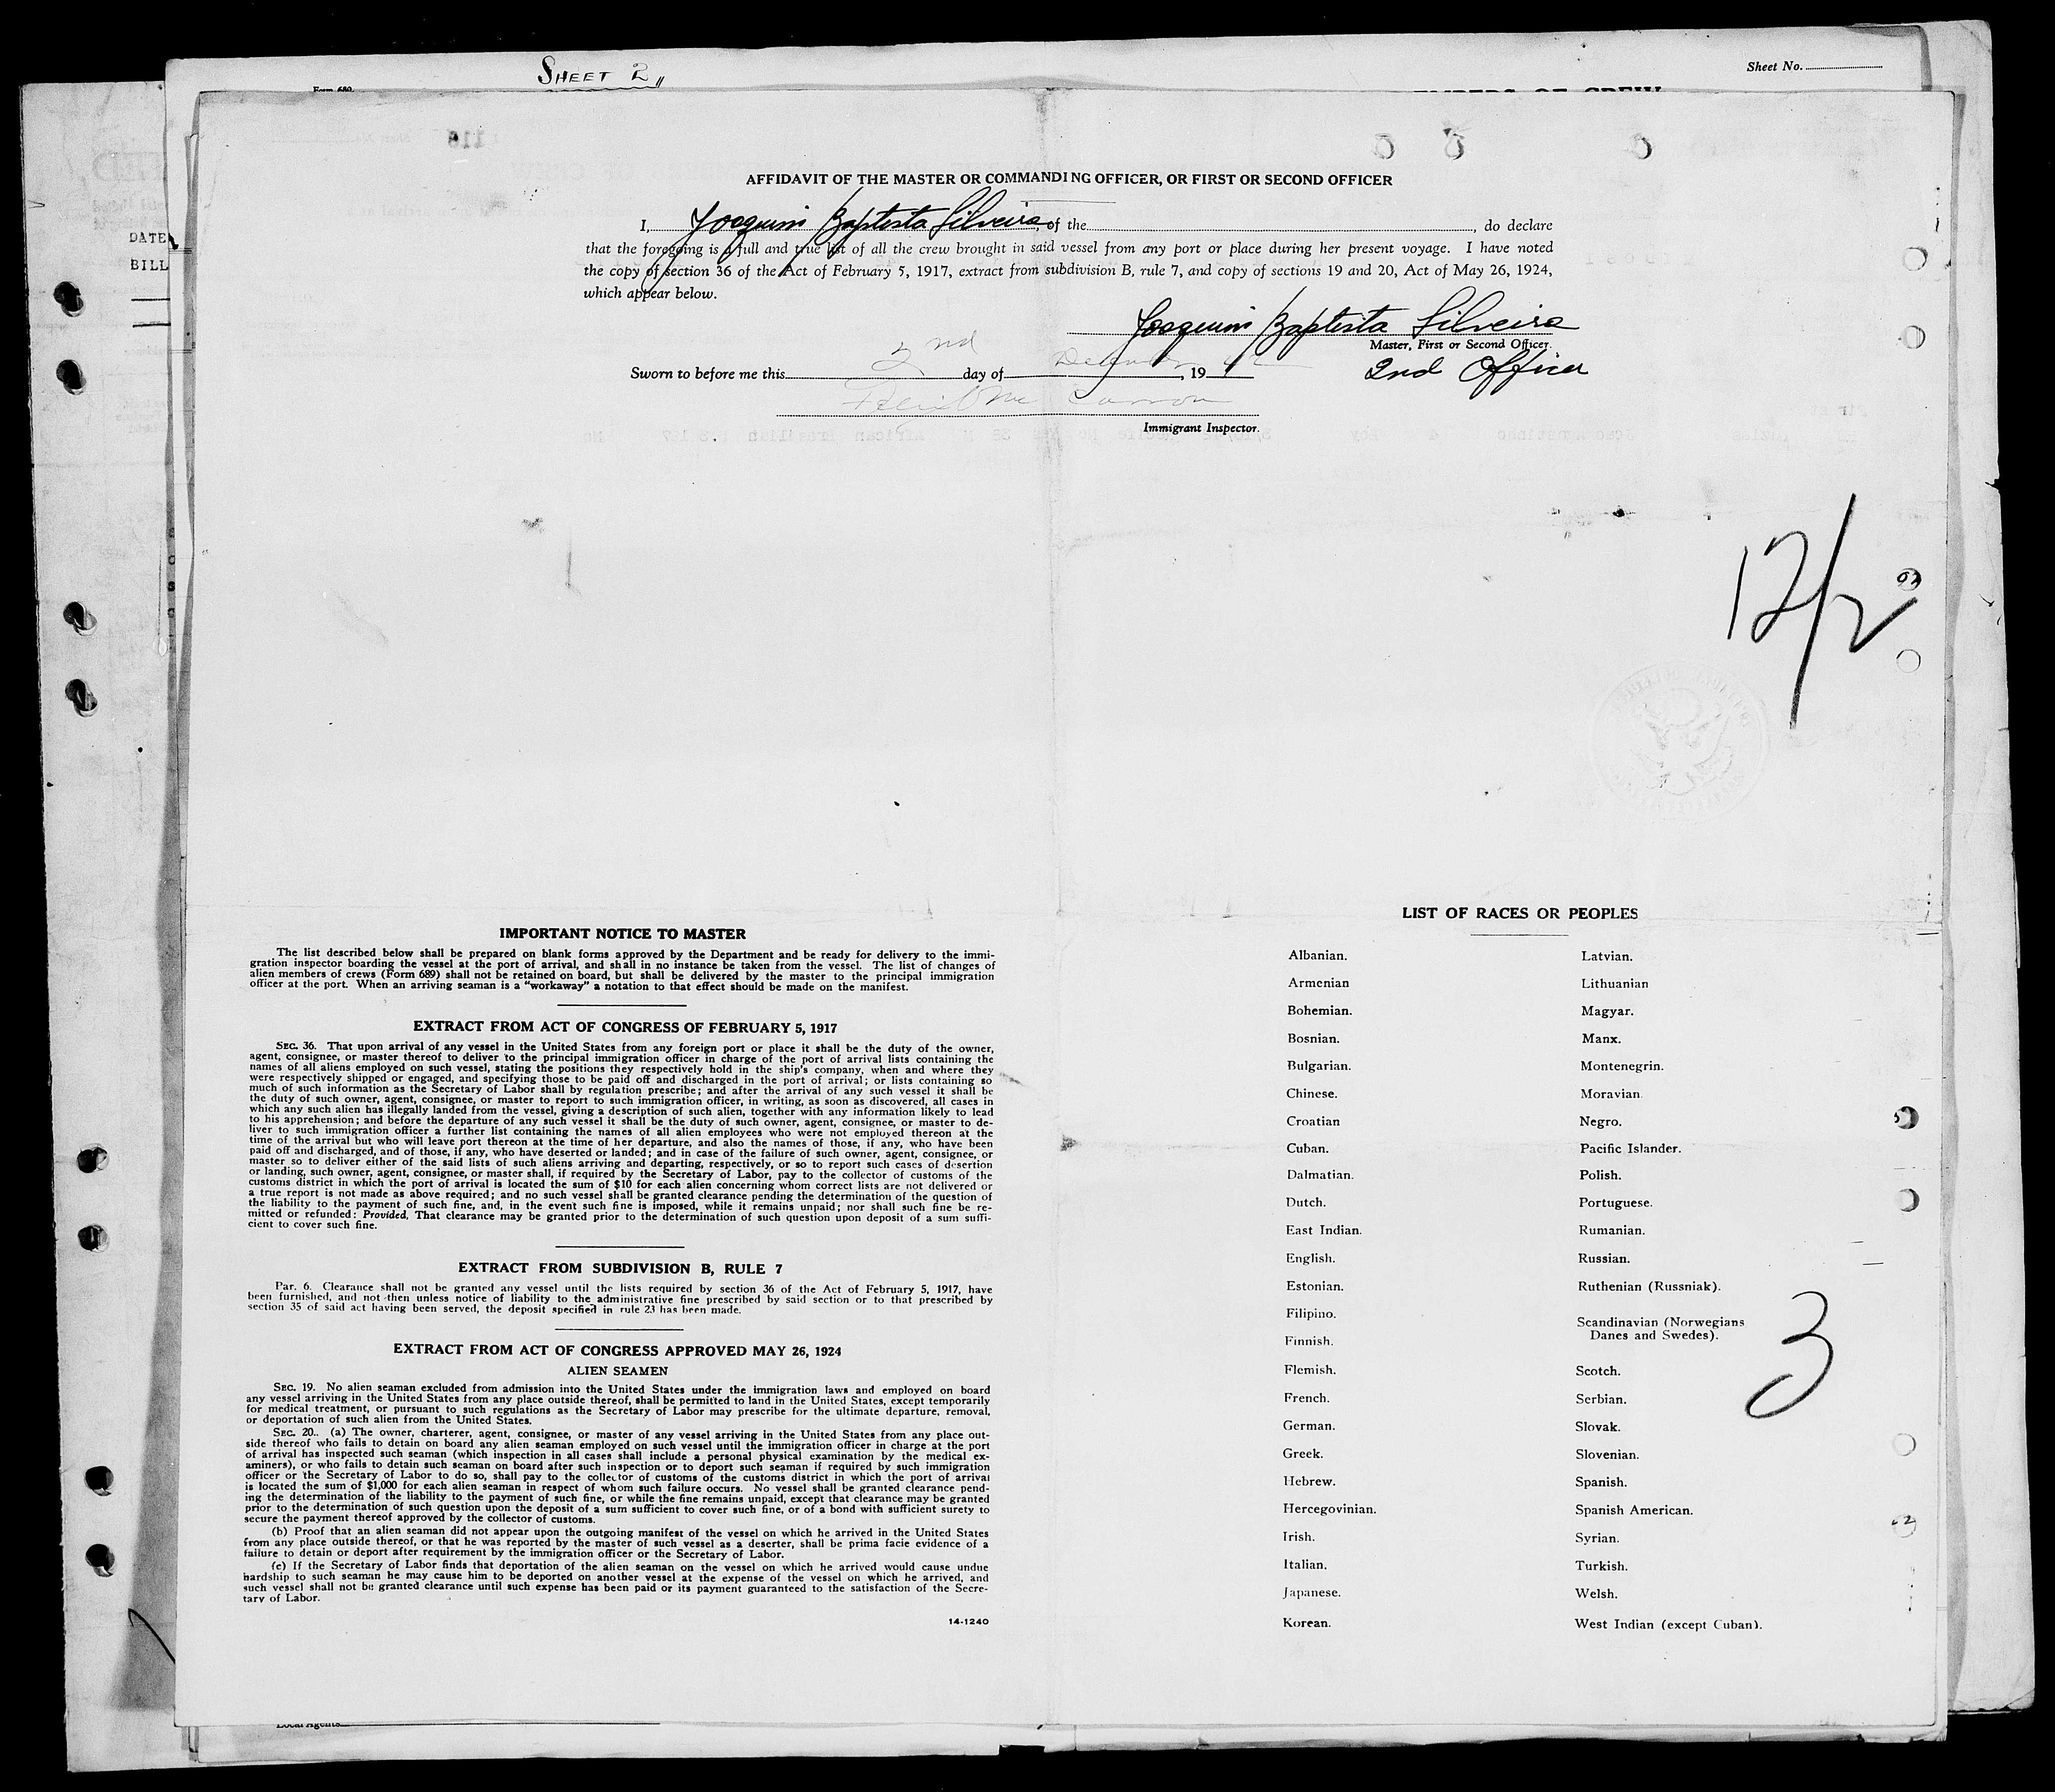 SHEET 2
Sheet No.
Form 689
DATE
BILL
AFFIDAVIT OF THE MASTER OR COMMANDING OFFICER, OR FIRST OR SECOND OFFICER
I, Joaquim Baptista Silveira, of the , do declare
that the foregoing is a full and true list of all the crew brought in said vessel from any port or place during her present voyage. I have noted
the copy of section 36 of the Act of February 5, 1917, extract from subdivision B, rule 7, and copy of sections 19 and 20, Act of May 26, 1924,
which appear below.
Joaquim Baptista Silveira
Master, First or Second Officer.
2nd Officer
Sworn to before me this 2nd day of December, 19 42
Immigrant Inspector.
12/2
IMPORTANT NOTICE TO MASTER
The list described below shall be prepared on blank forms approved by the Department and be ready for delivery to the immi-
gration inspector boarding the vessel at the port of arrival, and shall in no instance be taken from the vessel. The list of changes of
alien members of crews (Form 689) shall not be retained on board, but shall be delivered by the master to the principal immigration
officer at the port. When an arriving seaman is a "workaway" a notation to that effect should be made on the manifest.
EXTRACT FROM ACT OF CONGRESS OF FEBRUARY 5, 1917
SEC. 36. That upon arrival of any vessel in the United States from any foreign port or place it shall be the duty of the owner,
agent, consignee, or master thereof to deliver to the principal immigration officer in charge of the port of arrival lists containing the
names of all aliens employed on such vessel, stating the positions they respectively hold in the ship's company, when and where they
were respectively shipped or engaged, and specifying those to be paid off and discharged in the port of arrival; or lists containing so
much of such information as the Secretary of Labor shall by regulation prescribe; and after the arrival of any such vessel it shall be
the duty of such owner, agent, consignee, or master to report to such immigration officer, in writing, as soon as discovered, all cases in
which any such alien has illegally landed from the vessel, giving a description of such alien, together with any information likely to lead
to his apprehension; and before the departure of any such vessel it shall be the duty of such owner, agent, consignee, or master to de-
liver to such immigration officer a further list containing the names of all alien employees who were not employed thereon at the
time of the arrival but who will leave port thereon at the time of her departure, and also the names of those, if any, who have been
paid off and discharged, and of those, if any, who have deserted or landed; and in case of the failure of such owner, agent, consignee, or
master so to deliver either of the said lists of such aliens arriving and departing, respectively, or so to report such cases of desertion
or landing, such owner, agent, consignee, or master shall, if required by the Secretary of Labor, pay to the collector of customs of the
customs district in which the port of arrival is located the sum of $10 for each alien concerning whom correct lists are not delivered or
a true report is not made as above required; and no such vessel shall be granted clearance pending the determination of the question of
the liability to the payment of such fine, and, in the event such fine is imposed, while it remains unpaid; nor shall such fine be re-
mitted or refunded: Provided, That clearance may be granted prior to the determination of such question upon deposit of a sum suffi-
cient to cover such fine.
EXTRACT FROM SUBDIVISION B, RULE 7
Par. 6. Clearance shall not be granted any vessel until the lists required by section 36 of the Act of February 5, 1917, have
been furnished, and not then unless notice of liability to the administrative fine prescribed by said section or to that prescribed by
section 35 of said act having been served, the deposit specified in rule 23 has been made.
EXTRACT FROM ACT OF CONGRESS APPROVED MAY 26, 1924
ALIEN SEAMEN
SEC. 19. No alien seaman excluded from admission into the United States under the immigration laws and employed on board
any vessel arriving in the United States from any place outside thereof, shall be permitted to land in the United States, except temporarily
for medical treatment, or pursuant to such regulations as the Secretary of Labor may prescribe for the ultimate departure, removal,
or deportation of such alien from the United States.
SEC. 20.. (a) The owner, charterer, agent, consignee, or master of any vessel arriving in the United States from any place out-
side thereof who fails to detain on board any alien seaman employed on such vessel until the immigration officer in charge at the port
of arrival has inspected such seaman (which inspection in all cases shall include a personal physical examination by the medical ex-
aminers), or who fails to detain such seaman on board after such inspection or to deport such seaman if required by such immigration
officer or the Secretary of Labor to do so, shall pay to the collector of customs of the customs district in which the port of arrival
is located the sum of $1,000 for each alien seaman in respect of whom such failure occurs. No vessel shall be granted clearance pend-
ing the determination of the liability to the payment of such fine, or while the fine remains unpaid, except that clearance may be granted
prior to the determination of such question upon the deposit of a sum sufficient to cover such fine, or of a bond with sufficient surety to
secure the payment thereof approved by the collector of customs.
(b) Proof that an alien seaman did not appear upon the outgoing manifest of the vessel on which he arrived in the United States
from any place outside thereof, or that he was reported by the master of such vessel as a deserter, shall be prima facie evidence of a
failure to detain or deport after requirement by the immigration officer or the Secretary of Labor.
(c) If the Secretary of Labor finds that deportation of the alien seaman on the vessel on which he arrived would cause undue
hardship to such seaman he may cause him to be deported on another vessel at the expense of the vessel on which he arrived, and
such vessel shall not be granted clearance until such expense has been paid or its payment guaranteed to the satisfaction of the Secre-
tary of Labor.
14-1240
LIST OF RACES OR PEOPLES
Albanian.
Armenian
Bohemian.
Bosnian.
Bulgarian.
Chinese.
Croatian
Cuban.
Dalmatian.
Dutch.
East Indian.
English.
Estonian.
Filipino.
Finnish.
Flemish.
French.
German.
Greek.
Hebrew.
Hercegovinian.
Irish.
Italian.
Japanese.
Korean.
Latvian.
Lithuanian
Magyar.
Manx.
Montenegrin.
Moravian.
Negro.
Pacific Islander.
Polish.
Portuguese.
Rumanian.
Russian.
Ruthenian (Russniak).
Scandinavian (Norwegians
Danes and Swedes).
Scotch.
Serbian.
Slovak.
Slovenian.
Spanish.
Spanish American.
Syrian.
Turkish.
Welsh.
West Indian (except Cuban).
3
Local Agents